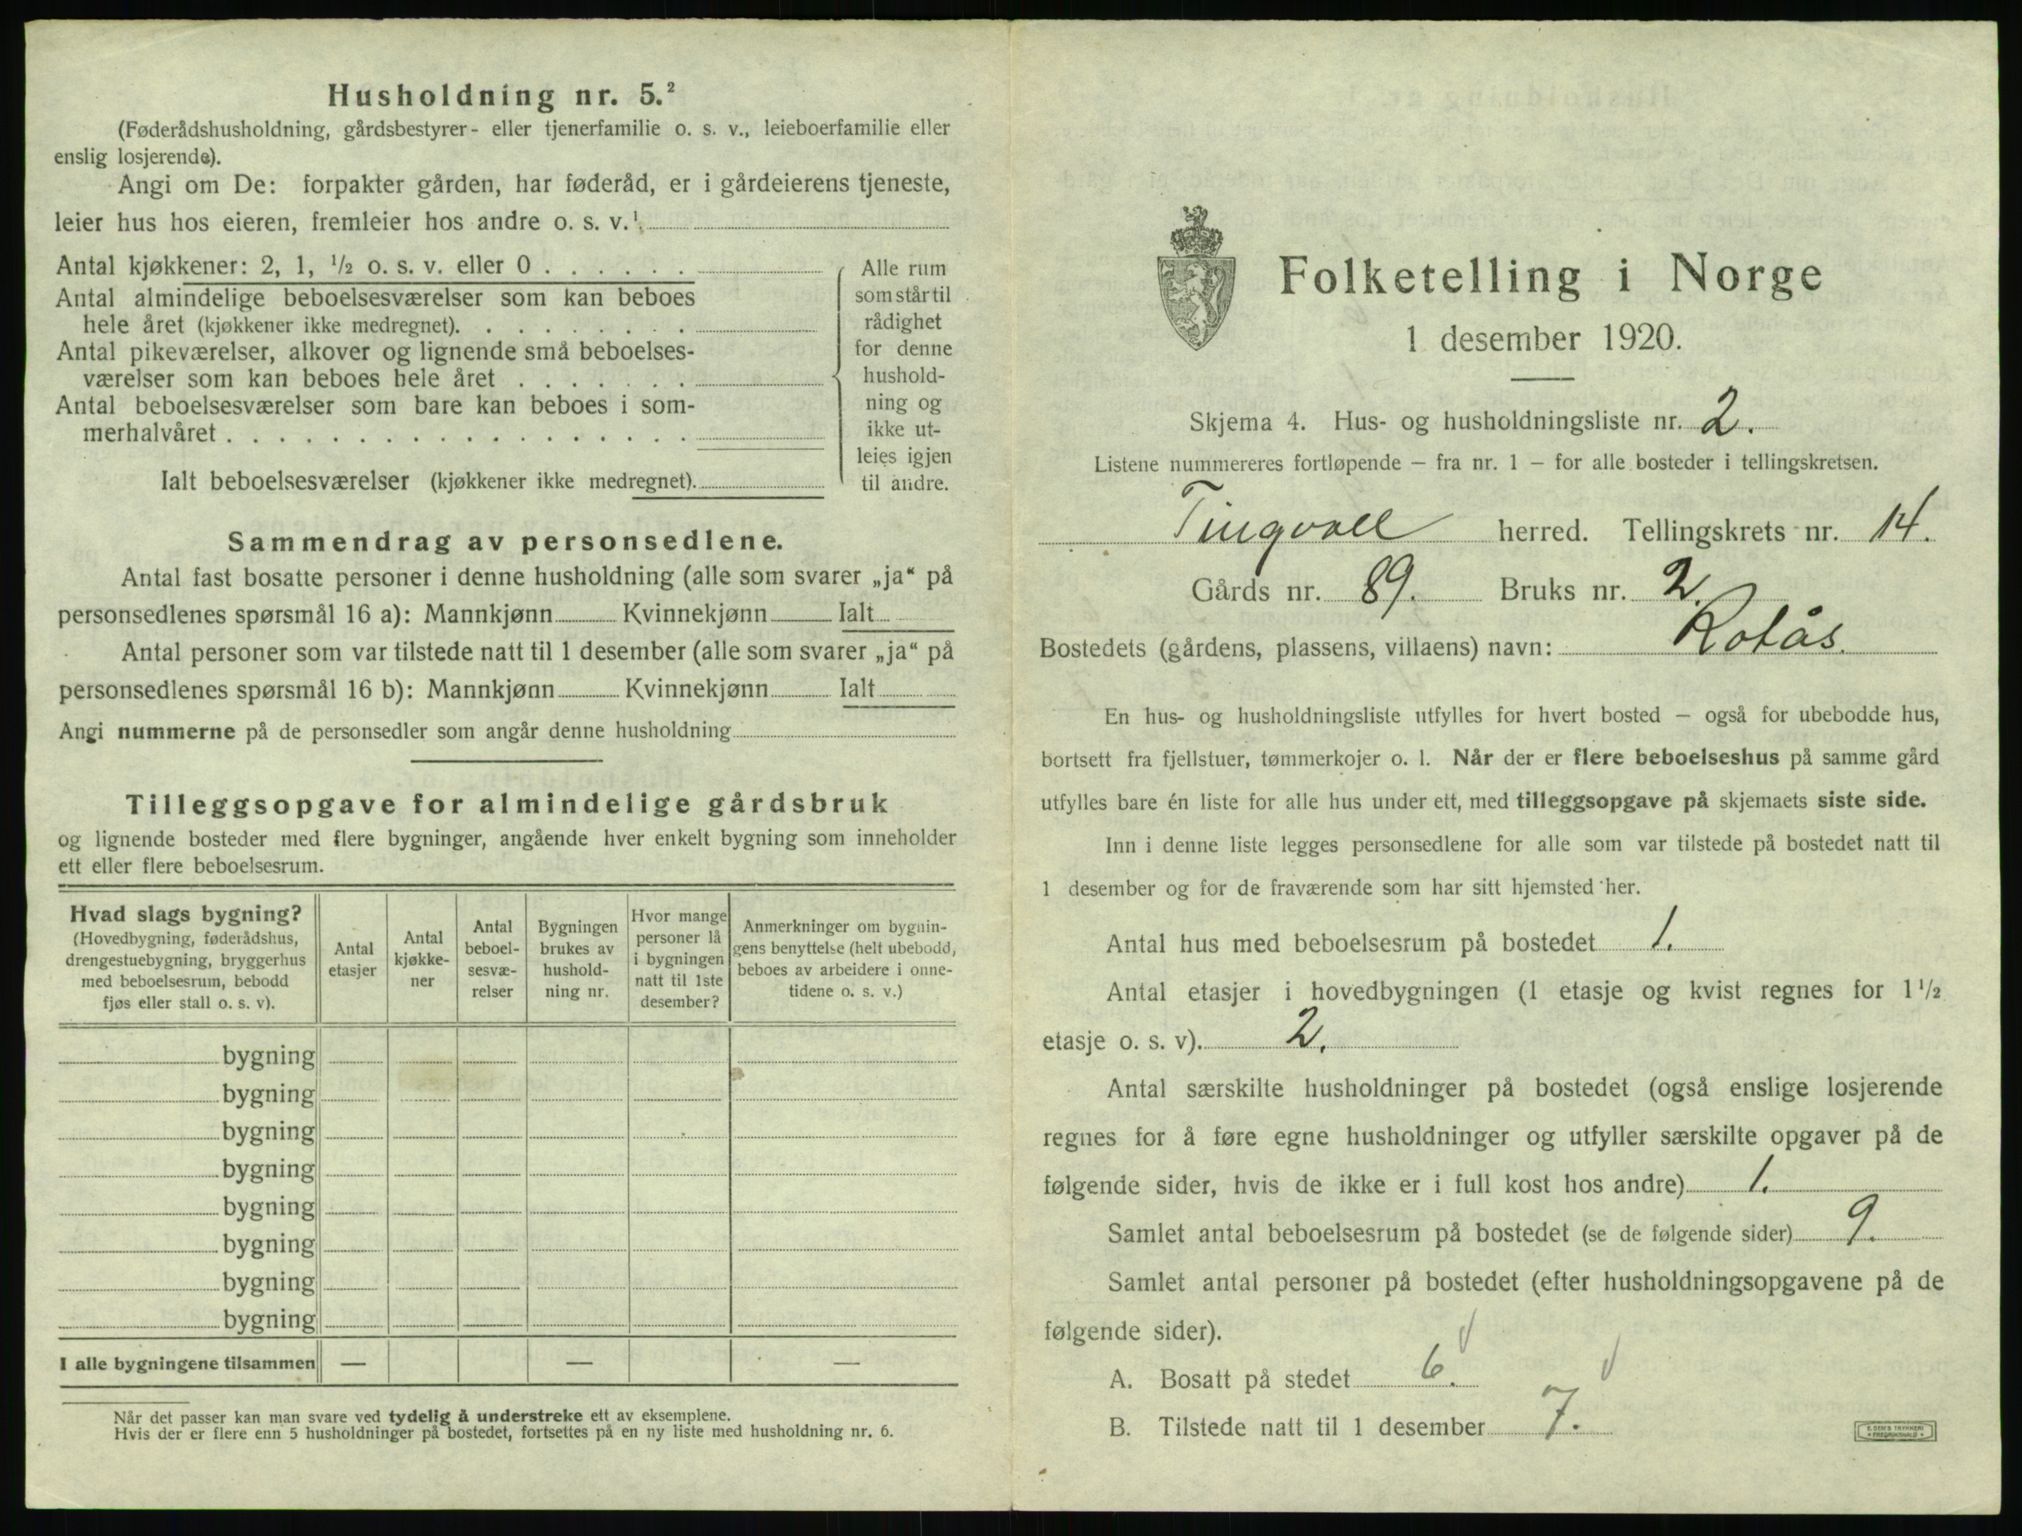 Husholdning nr. 5.²
(Føderådshusholdning, gårdsbestyrer- eller tjenerfamilie o. s. v., leieboerfamilie eller
enslig losjerende).
Angi om De: forpakter gården, har føderåd, er i gårdeierens tjeneste,
leier hus hos eieren, fremleier hos andre o. s. v.¹
Antal kjøkkener: 2, 1, ½ o. s. v. eller 0 . . . . . .
Antal almindelige beboelsesværelser som kan beboes
hele året (kjøkkener ikke medregnet). . . . . . . . .
Antal pikeværelser, alkover og lignende små beboelses-
værelser som kan beboes hele året . . . . . . .
Antal beboelsesværelser som bare kan beboes i som-
merhalvåret . . . . . . . . . . . . . . . . . .
Ialt beboelsesværelser (kjøkkener ikke medregnet).
Alle rum
som står til
rådighet
for denne
hushold-
ning og
ikke ut-
leies igjen
til andre.
Sammendrag av personsedlene.
Antal fast bosatte personer i denne husholdning (alle som svarer „ja“ på
personsedlenes spørsmål 16 a): Mannkjønn Kvinnekjønn Ialt
Antal personer som var tilstede natt til 1 desember (alle som svarer „ja“ på
personsedlenes spørsmål 16 b): Mannkjønn Kvinnekjønn Ialt
Angi nummerne på de personsedler som angår denne husholdning
Tilleggsopgave for almindelige gårdsbruk
og lignende bosteder med flere bygninger, angående hver enkelt bygning som inneholder
ett eller flere beboelsesrum.
Hvad slags bygning?
(Hovedbygning, føderådshus,
drengestuebygning, bryggerhus
med beboelsesrum, bebodd
fjøs eller stall o. s. v).
Antal
etasjer
Antal
kjøkke-
ner
Antal
beboel-
sesvæ-
relser
Bygningen
brukes av
hushold-
ning nr.
Hvor mange
personer lå
i bygningen
natt til 1ste
desember?
Anmerkninger om bygnin-
gens benyttelse (helt ubebodd,
beboes av arbeidere i onne-
tidene o. s. v.)
bygning
bygning
bygning
bygning
bygning
bygning
bygning
bygning
I alle bygningene tilsammen — — —
Når det passer kan man svare ved tydelig å understreke ett av eksemplene.
Hvis der er flere enn 5 husholdninger på bostedet, fortsettes på en ny liste med husholdning nr. 6.
Folketelling i Norge
1 desember 1920.
Skjema 4. Hus- og husholdningsliste nr. 2.
Listene nummereres fortløpende – fra nr. 1 – for alle bosteder i tellingskretsen.
Tingvoll herred. Tellingskrets nr. 14.
Gårds nr. 89. Bruks nr. 2.
Bostedets (gårdens, plassens, villaens) navn: Rotås.
En hus- og husholdningsliste utfylles for hvert bosted – også for ubebodde hus,
bortsett fra fjellstuer, tømmerkojer o. l. Når der er flere beboelseshus på samme gård
utfylles bare én liste for alle hus under ett, med tilleggsopgave på skjemaets siste side.
Inn i denne liste legges personsedlene for alle som var tilstede på bostedet natt til
1 desember og for de fraværende som har sitt hjemsted her.
Antal hus med beboelsesrum på bostedet 1.
Antal etasjer i hovedbygningen (1 etasje og kvist regnes for 1½
etasje o. s. v). 2.
Antal særskilte husholdninger på bostedet (også enslige losjerende
regnes for å føre egne husholdninger og utfyller særskilte opgaver på de
følgende sider, hvis de ikke er i full kost hos andre) 1.
Samlet antal beboelsesrum på bostedet (se de følgende sider) 9.
Samlet antal personer på bostedet (efter husholdningsopgavene på de
følgende sider).
A. Bosatt på stedet 6.
B. Tilstede natt til 1 desember 7.